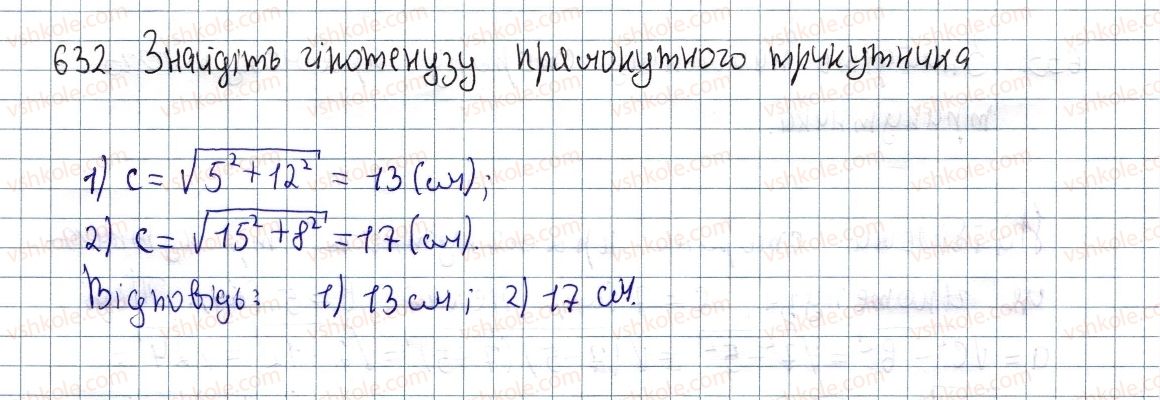 632. Знайдіть гіпотенузу прямокутного трикутника
1) c = √5² + 12² = 13 (см);
2) c = √15² + 8² = 17 (см).
Відповідь: 1) 13 см; 2) 17 см.